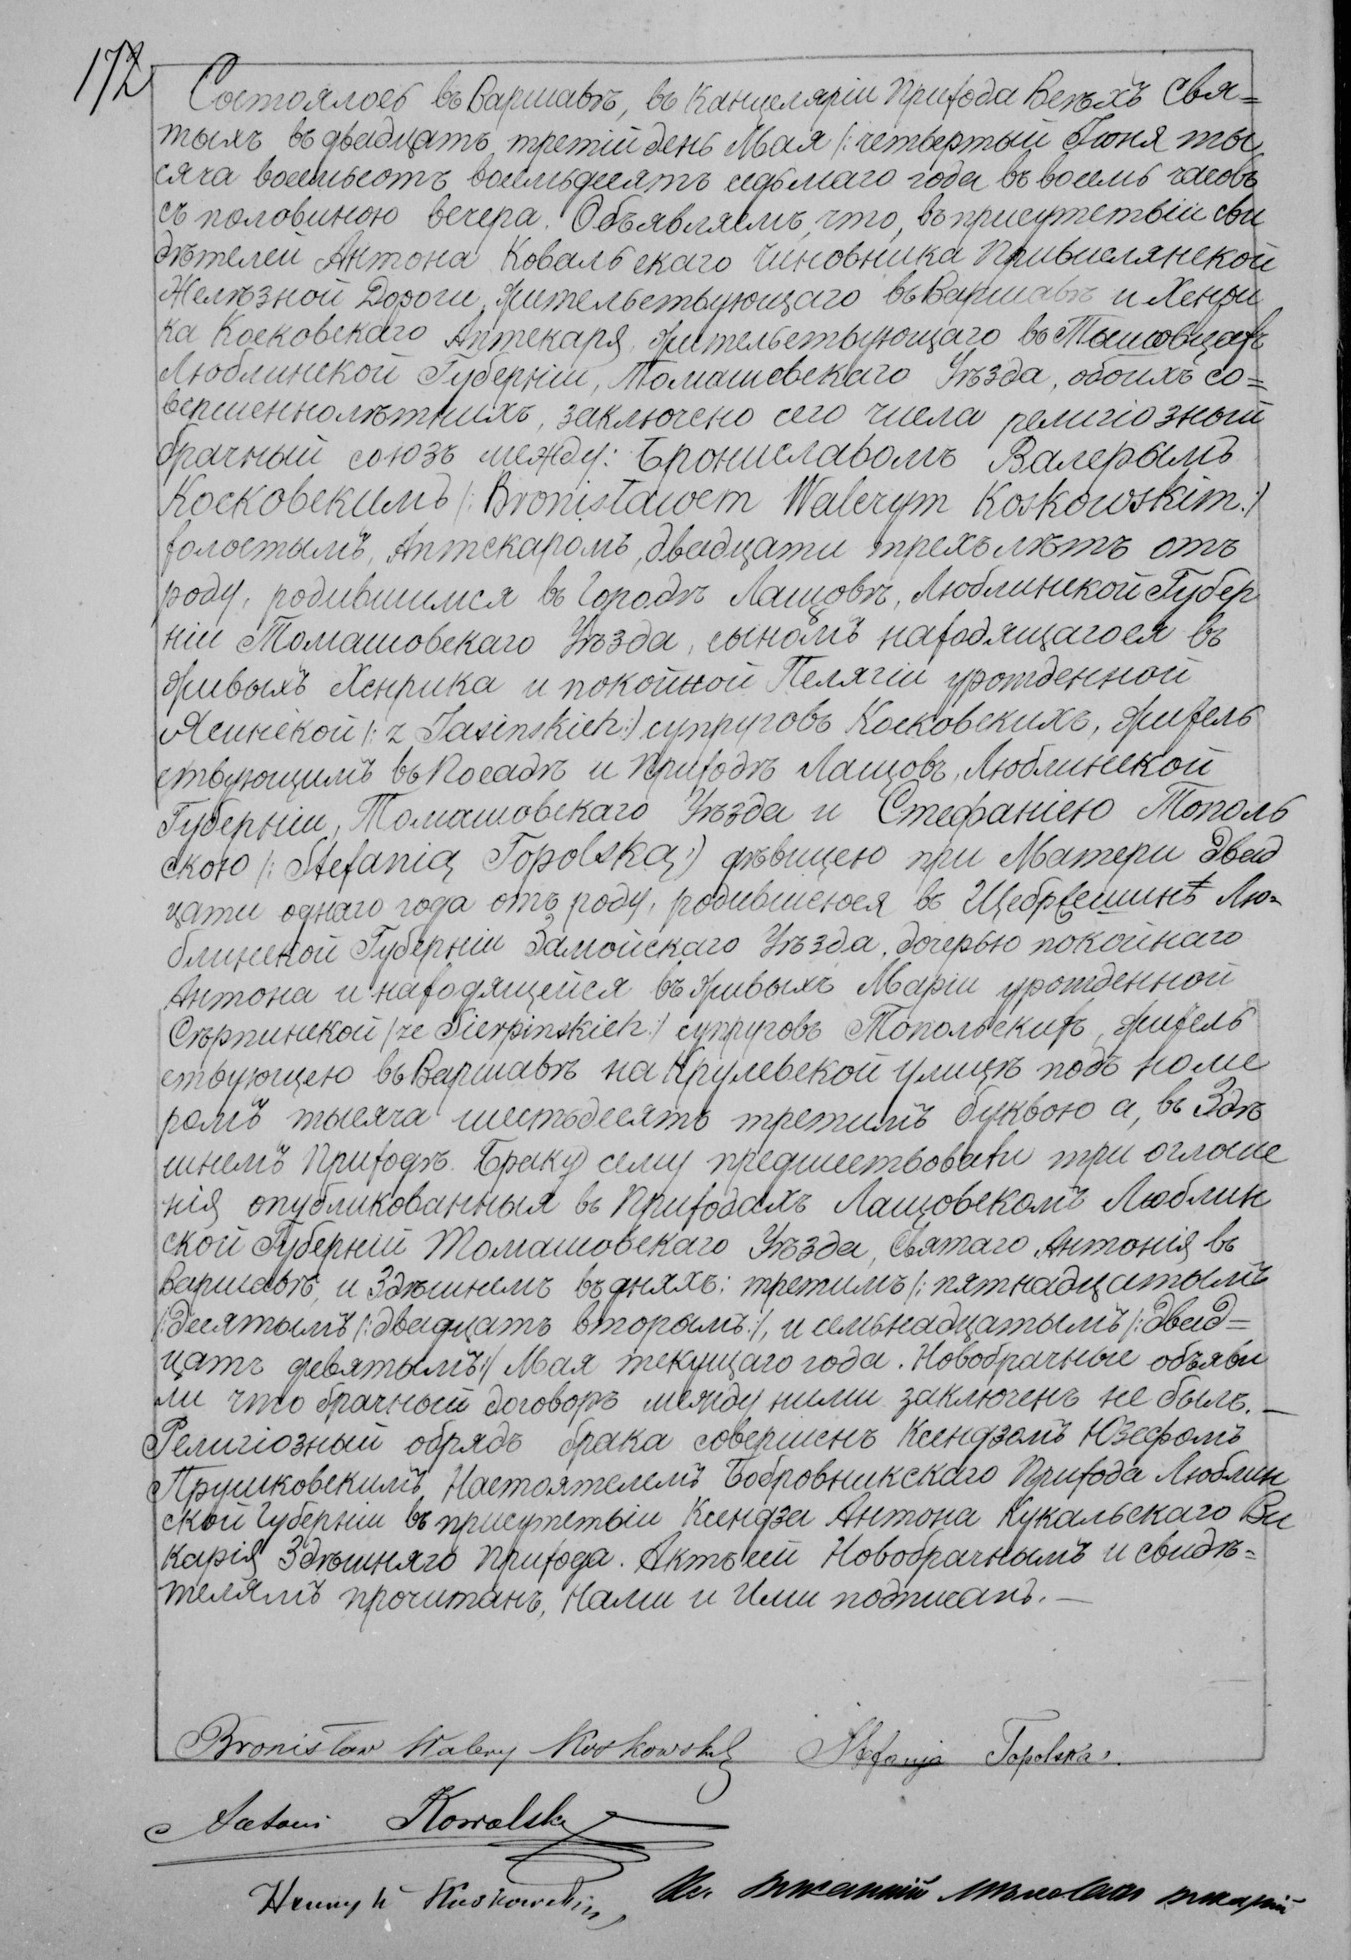 172
Состоялось въ Варшавѣ, въ Канцеляріи Прихода Всѣхъ Свя=
тыхъ въ двадцать третій день Мая /:четвертый Іюня ты
сяча восемьсотъ восемьдесятъ седьмаго года въ восемь часовъ
съ половиною вечера. Объявляемъ, что, въ присутствіи сви
дѣтелей Антона Ковальскаго Чиновника Привислянской
Желѣзной Дороги, жительствующаго въ Варшавѣ и Хенри
ка Косковскаго Аптекаря, жительствующаго въ Тышовцахъ
Люблинской Губерніи, Томашовскаго Уѣзда, обоихъ со=
вершеннолѣтнихъ, заключено сего числа религіозный
брачный союзъ между: Брониславомъ Валерымъ
Косковскимъ /: Bronisławem Walerym Koskowskim:/
холостымъ, Аптекаромъ, двадцати трехъ лѣтъ отъ
роду, родившимся въ Городѣ Лащовѣ, Люблинской Губер
ніи Томашовскаго Уѣзда, сыномъ находящагося въ
живыхъ Хенрика и покойной Пелягіи урожденной
Ясинской /: z Jasinskich:/ супруговъ Косковскихъ, жител͏ь
ствующимъ въ Посадѣ и Приходѣ Лащовъ, Люблинской
Губерніи, Томашовскаго Уѣзда и Стефаніею Тополь
скою /: Stefanią Topolską:/ дѣвицею при Матери двад
цати однаго года отъ роду, родившеюся въ Щебрешинѣ Лю=
блинской Губерніи Замойскаго Уѣзда, дочерью покойнаго
Антона и находящейся въ живыхъ Маріи урожденной
Сѣрпинской /: ze Sierpinskich:/ супруговъ Топольскихъ, житель
ствующею въ Варшавѣ на Крулевской улицѣ подъ номе
ромъ тысяча шестьдесятъ третимъ буквою а, въ Здѣ
шнемъ Приходѣ. Браку сему предшествовали три оглаше
нія опубликованныя въ Приходахъ Лащовскомъ Люблин
ской Губерній Томашовскаго Уѣзда, Святаго Антонія въ
Варшавѣ, и Здѣшнемъ въ дняхъ: третимъ /: пятнадцатымъ
/Десятымъ /:двадцать вторымъ:/, и семьнадцатымъ /:двад=
цать девятымъ:/ Мая текущаго года. Новобрачные объяви
ли что брачный договоръ между ними заключенъ не былъ. —
Религіозный обрядъ брака совершенъ Ксендзомъ Юзефомъ
Прушковскимъ, Настоятелемъ Бобровникскаго Прихода Люблин
ской Губерніи въ присутствіи Ксендза Антона Кукальскаго Ви
карія Здѣшняго Прихода. Актъ сей Новобрачнымъ и свидѣ=
телямъ прочитанъ, Нами и Ими подписанъ. —
Bronisław Walery Koskowski Stefanja Topolska.
Antoni Kowalski
Henryk Koskowski,